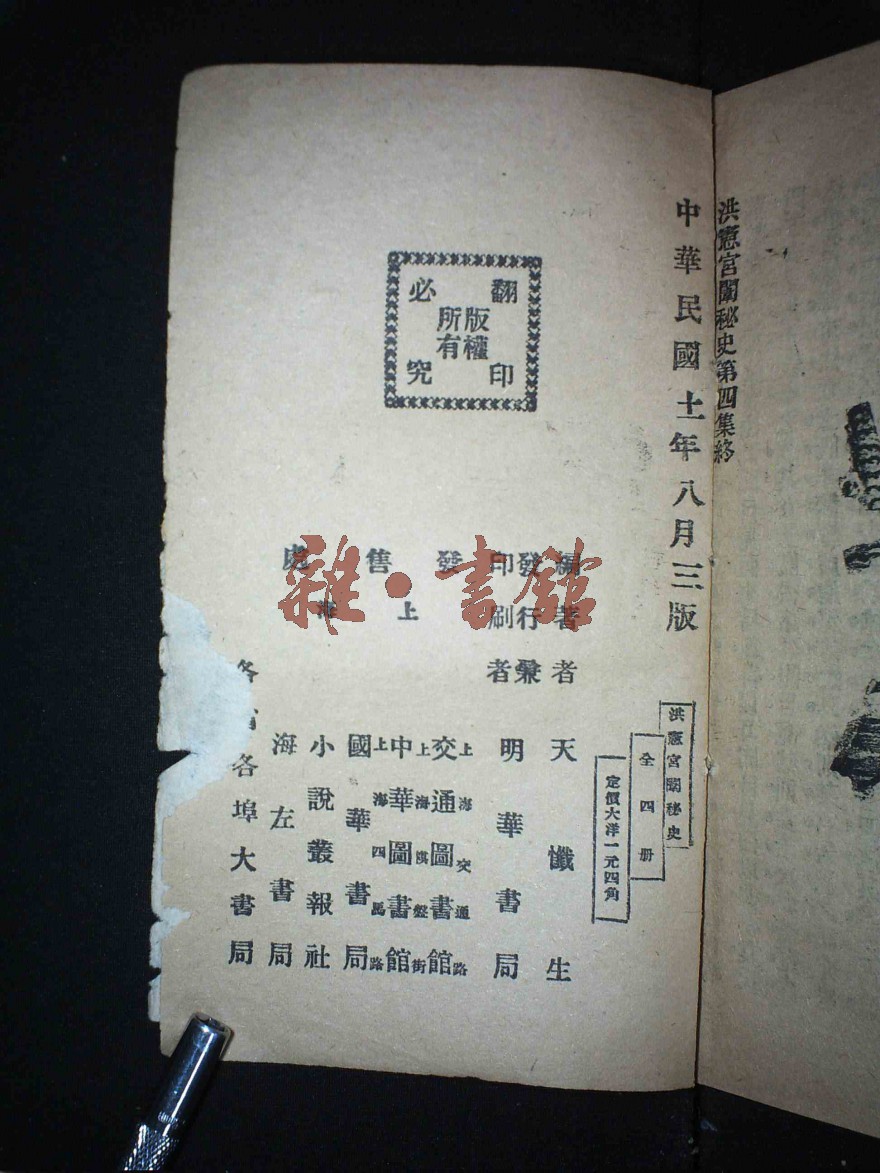 洪憲宮闈秘史第四集終
中華民國十一年八月三版
洪憲宮闈秘史
全四册
定價大洋一元四角
翻印必究
版權所有
編著者 天懺生
發行兼
印刷者 明華書局
發售處
上海
上海交通路
交通圖書館
上海棋盤街
中華圖書館
上海四馬路
國華書局
小說叢報社
海左書局
各省各埠大書局
雜·書館